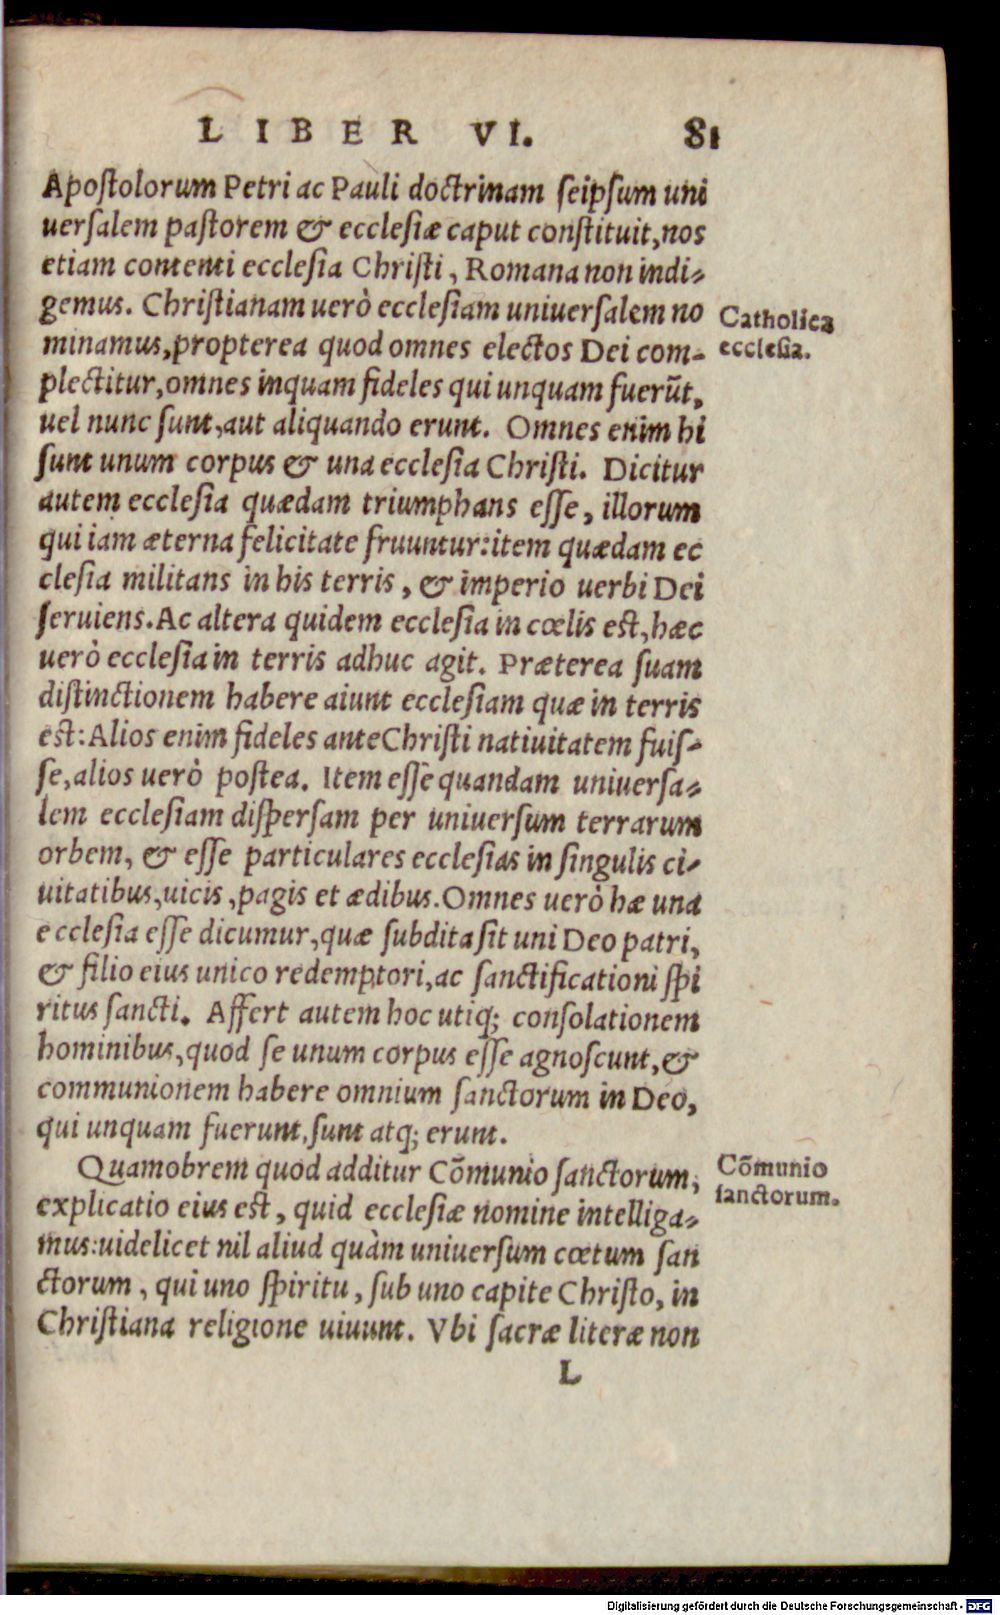 LIBER VI. 81
Apostolorum Petri ac Pauli doctrinam seipsum uni
uersalem pastorem & ecclesiæ caput constituit, nos
etiam contenti ecclesia Christi, Romana non indi-
gemus. Christianam uerò ecclesiam uniuersalem no
Catholica
minamus, propterea quod omnes electos Dei com-
ecclesia.
plectitur, omnes inquam fideles qui unquam fuerūt,
uel nunc sunt, aut aliquando erunt. Omnes enim hi
sunt unum corpus & una ecclesia Christi. Dicitur
autem ecclesia quædam triumphans esse, illorum
qui iam æterna felicitate fruuntur: item quædam ec
clesia militans in his terris, & imperio uerbi Dei
seruiens. Ac altera quidem ecclesia in cœlis est, hæc
uerò ecclesia in terris adhuc agit. Præterea suam
distinctionem habere aiunt ecclesiam quæ in terris
est: Alios enim fideles ante Christi natiuitatem fuis-
se, alios uerò postea. Item esse quandam uniuersa-
lem ecclesiam dispersam per uniuersum terrarum
orbem, & esse particulares ecclesias in singulis ci-
uitatibus, uicis, pagis et ædibus. Omnes uerò hæ una
ecclesia esse dicuntur, quæ subdita sit uni Deo patri,
& filio eius unico redemptori, ac sanctificationi spi
ritus sancti. Affert autem hoc utiq; consolationem
hominibus, quod se unum corpus esse agnoscunt, &
communionem habere omnium sanctorum in Deo,
qui unquam fuerunt, sunt atq; erunt.
Quamobrem quod additur Cōmunio sanctorum,
Cōmunio
sanctorum.
explicatio eius est, quid ecclesiæ nomine intelliga-
mus: uidelicet nil aliud quàm uniuersum cœtum san
ctorum, qui uno spiritu, sub uno capite Christo, in
Christiana religione uiuunt. Vbi sacræ literæ non
L
Digitalisierung gefördert durch die Deutsche Forschungsgemeinschaft - DFG